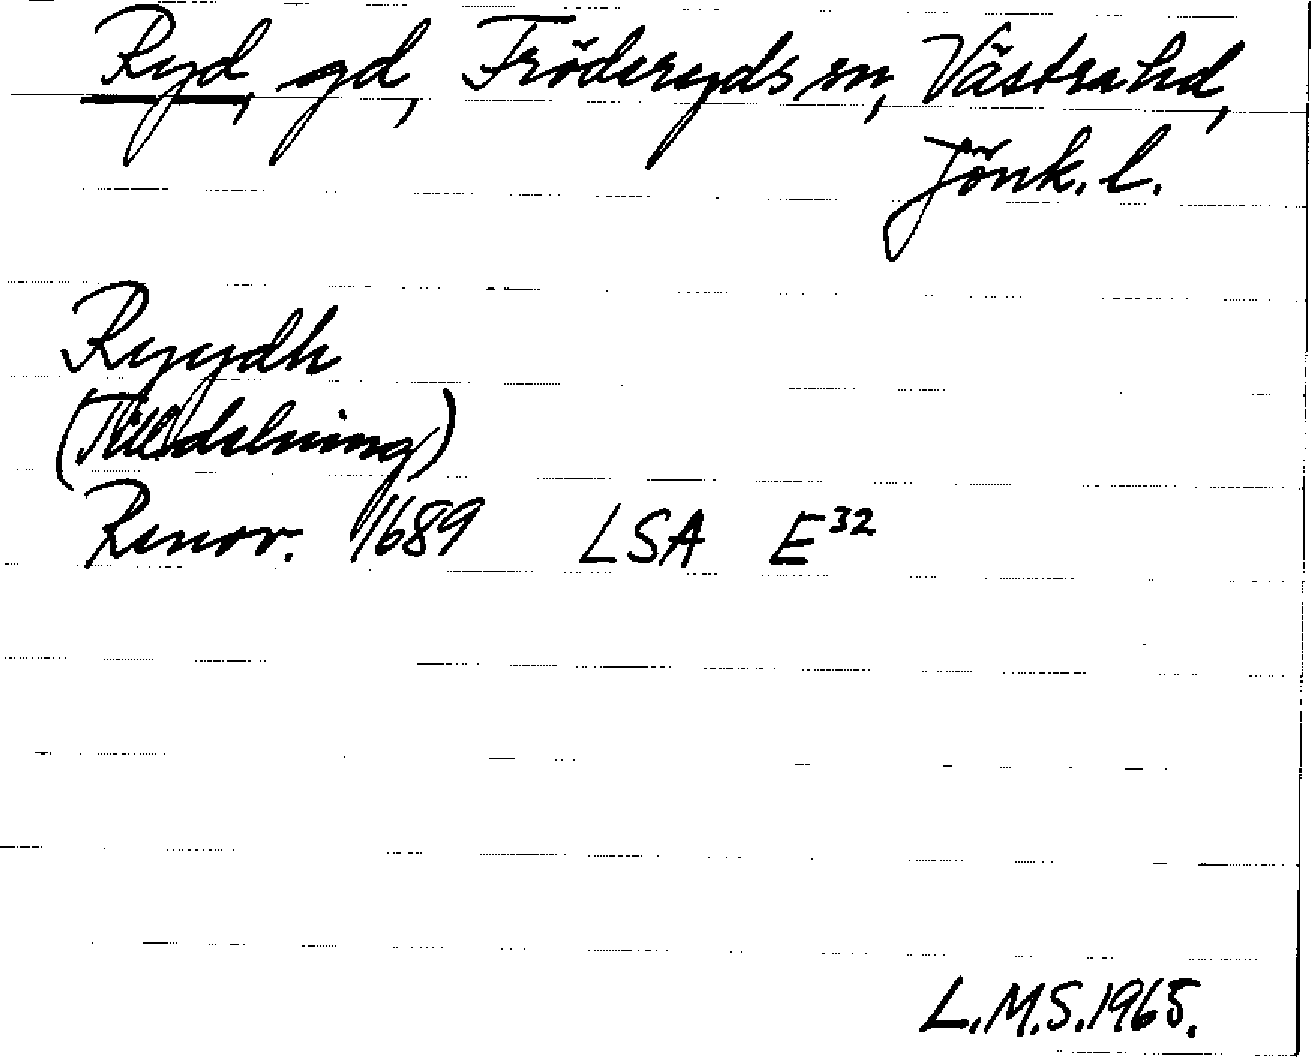 Ryd, gd, Fröderyds sn, Västra hd,
Jönk. l.
Ryydh
(Tilldelning)
Renov. 1689 LSA E32
L.M.S. 1965.